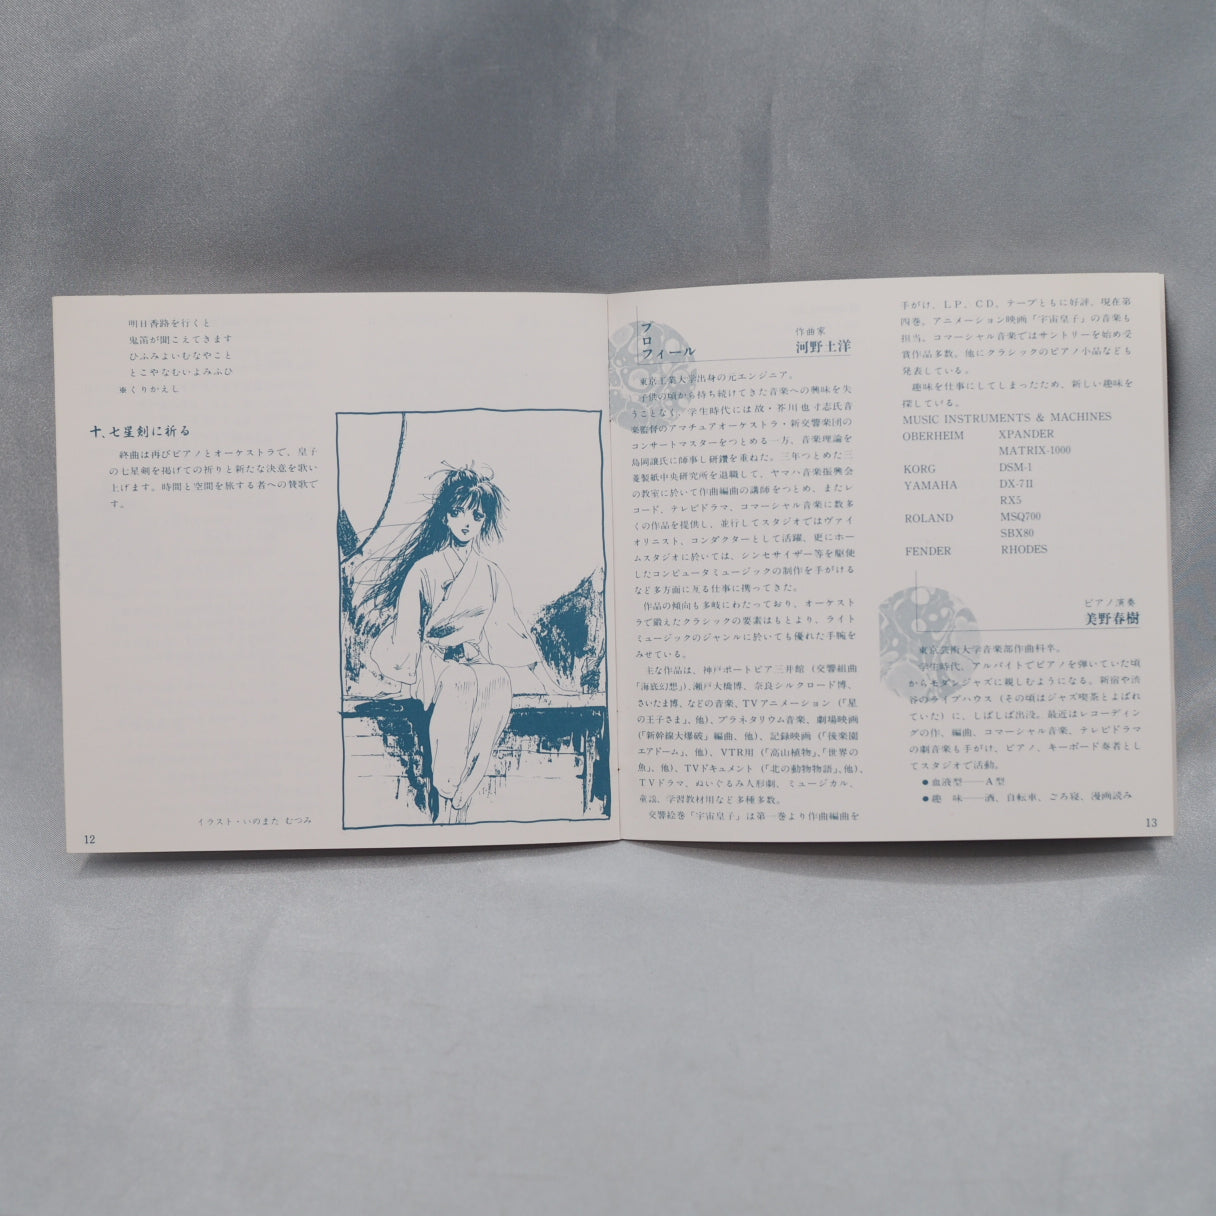 明日香路を行くと
鬼笛が聞こえてきます
ひふみよいむなやこと
とこやなむいよみふひ
※くりかえし
十、七星剣に祈る
終曲は再びピアノとオーケストラで、皇子
の七星剣を掲げての祈りと新たな決意を歌い
上げます。時間と空間を旅する者への賛歌で
す。
イラスト・いのまた むつみ
12
プロフィール
作曲家
河野土洋
東京工業大学出身の元エンジニア。
子供の頃から持ち続けてきた音楽への興味を失
うことなく、学生時代には故・芥川也寸志氏音
楽監督のアマチュアオーケストラ・新交響楽団の
コンサートマスターをつとめる一方、音楽理論を
島岡譲氏に師事し研鑽を重ねた。三年つとめた三
菱製紙中央研究所を退職して、ヤマハ音楽振興会
の教室に於いて作曲編曲の講師をつとめ、またレ
コード、テレビドラマ、コマーシャル音楽に数多
くの作品を提供し、並行してスタジオではヴァイ
オリニスト、コンダクターとして活躍、更にホー
ムスタジオに於いては、シンセサイザー等を駆使
したコンピュータミュージックの制作を手がける
など多方面に亙る仕事に携ってきた。
作品の傾向も多岐にわたっており、オーケスト
ラで鍛えたクラシックの要素はもとより、ライト
ミュージックのジャンルに於いても優れた手腕を
みせている。
主な作品は、神戸ポートピア三井館（交響組曲
「海底幻想」）、瀬戸大橋博、奈良シルクロード博、
さいたま博、などの音楽、TVアニメーション（「星
の王子さま」、他）、プラネタリウム音楽、劇場映画
（「新幹線大爆破」編曲、他）、記録映画（「後楽園
エアドーム」、他）、VTR用（「高山植物」、「世界の
魚」、他）、TVドキュメント（「北の動物物語」、他）、
TVドラマ、ぬいぐるみ人形劇、ミュージカル、
童謡、学習教材用など多種多数。
交響絵巻「宇宙皇子」は第一巻より作曲編曲を
手がけ、LP、CD、テープともに好評、現在第
四巻。アニメーション映画「宇宙皇子」の音楽も
担当。コマーシャル音楽ではサントリーを始め受
賞作品多数。他にクラシックのピアノ小品なども
発表している。
趣味を仕事にしてしまったため、新しい趣味を
探している。
MUSIC INSTRUMENTS & MACHINES
OBERHEIM XPANDER
MATRIX-1000
KORG DSM-1
YAMAHA DX-7II
RX5
ROLAND MSQ700
SBX80
FENDER RHODES
ピアノ演奏
美野春樹
東京芸術大学音楽部作曲科卒。
学生時代、アルバイトでピアノを弾いていた頃
からモダンジャズに親しむようになる。新宿や渋
谷のライブハウス（その頃はジャズ喫茶とよばれ
ていた）に、しばしば出没。最近はレコーディン
グの作、編曲、コマーシャル音楽、テレビドラマ
の劇音楽も手がけ、ピアノ、キーボード奏者とし
てスタジオで活動。
●血液型――A型
●趣 味――酒、自転車、ごろ寝、漫画読み
13